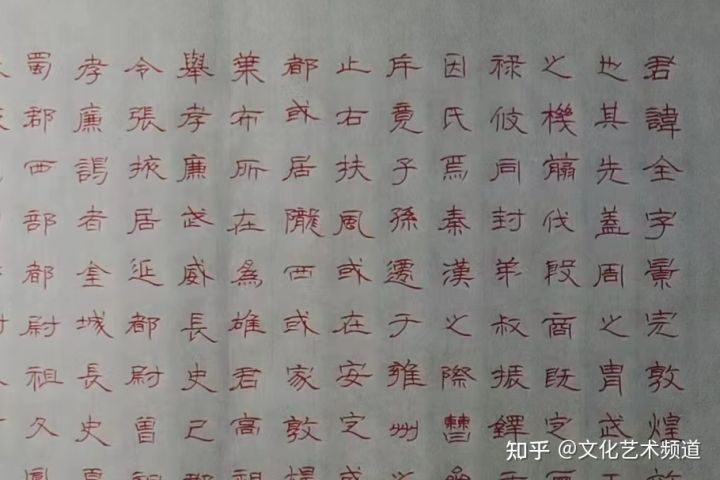 君諱全字景完敦煌
也其先蓋周之胄武
之機翦伐殷商既定
祿攸同封弟叔振鐸
因氏焉秦漢之際曹
斥竟子孫遷于雍州
止右扶風或在安定
都或居隴西或家敦
葉布所在爲雄君高
舉孝廉武威長史巳
令張掖居延都尉曾
孝廉謁者金城長史
蜀郡西部都尉祖父
知乎 @文化艺术频道